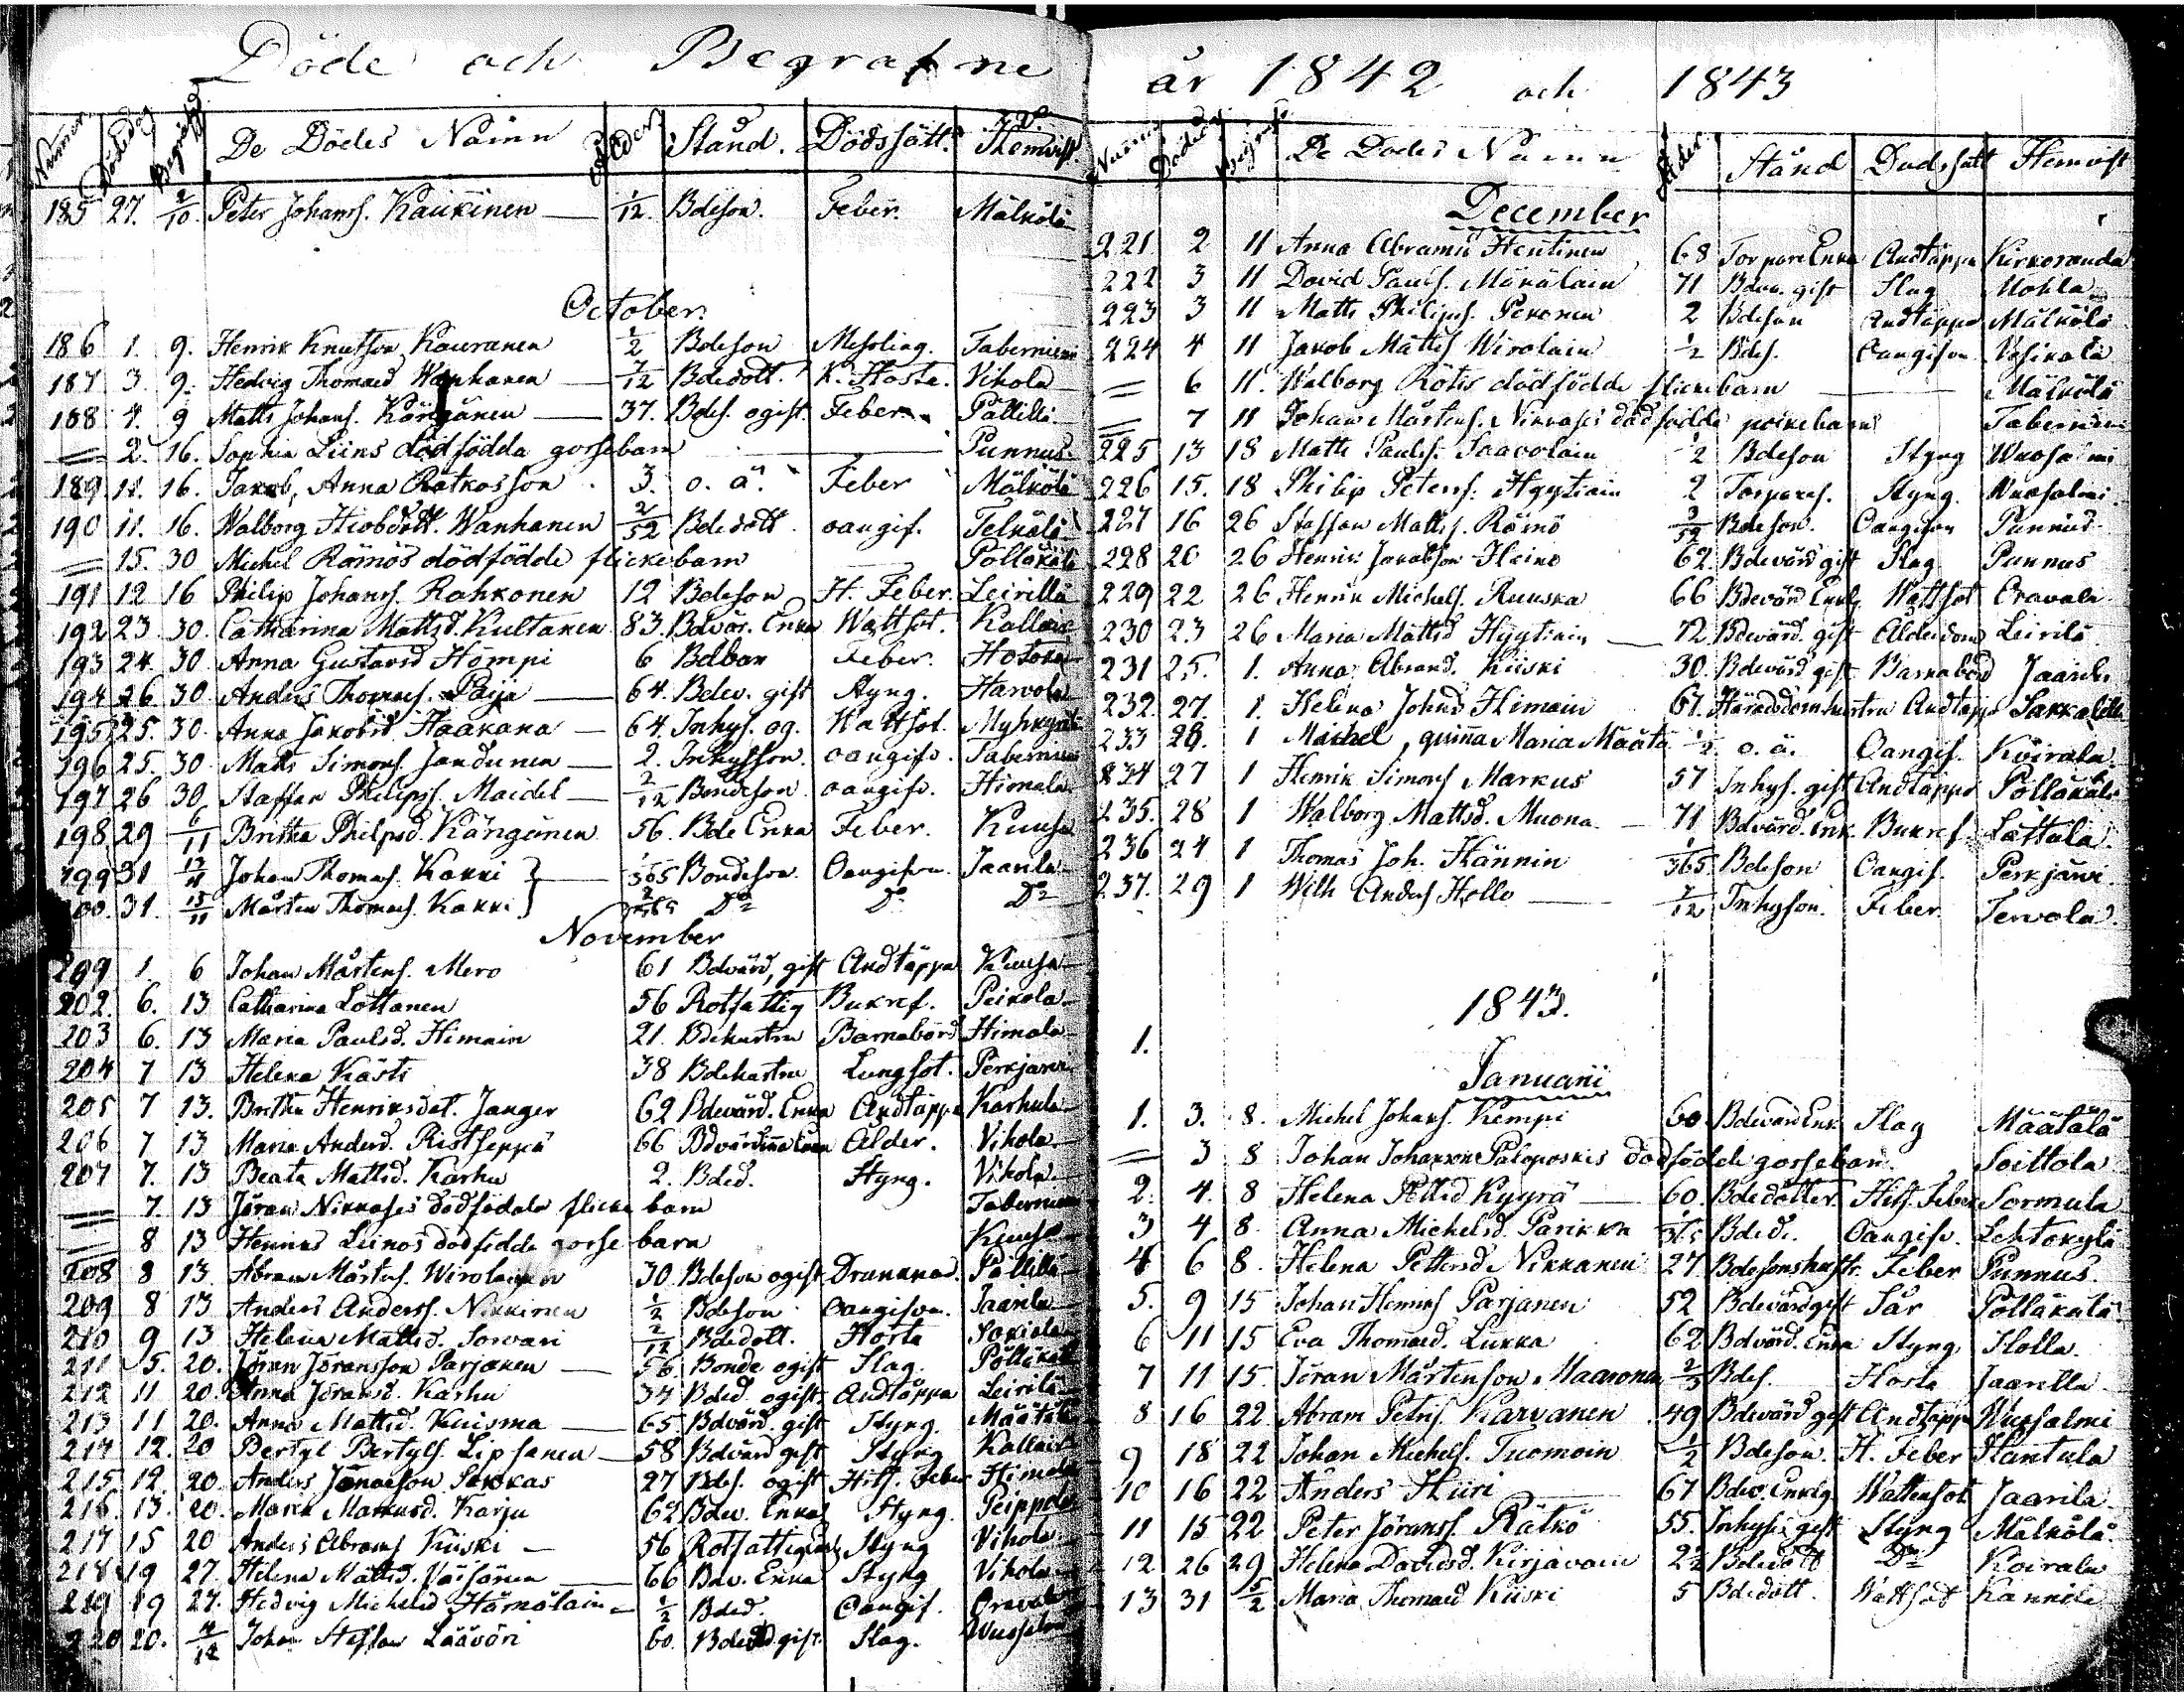 Döde och Begrafne
Nummer Dödsdag Begrafn. De Dödes Namn Ålder Stånd. Dödssätt. Hemvist
185 27. 2/10. Peter Johanss. Kaukinen — 1/12. Bdeson. Feber. Mälkölä
October.
186 1. 9. Henrik Knutson Kauranen 1/2 Bdeson Messling. Taberniem
187 3. 9. Hedvig Thomasd Wanhanen — 7/12 Bdedott. K. Hosta. Vihola
188 4. 9 Matts Johans. Köngänen — 37. Bdes. ogift. Feber. Pällilä
= 2. 16. Sophia Leins dödfödda gossebarn — Punnus
189 11. 16. Jakob, Anna Ratkosson 3. o. ä. Feber Mälkölä
190 11. 16. Walborg Hiobdott. Wanhanen 2/52 Bdedott. oangif. Telkälä
= 15. 30 Michel Rämös dödfödde flickebarn — Pölläkälä
191 12 16 Philip Johanss. Rahkonen 12 Bdeson H. Feber. Leirilä
192 23. 30. Catharina Mattsd. Kultanen 83. Bdvär. Enka Wattsot.
193 24. 30. Anna Gustavsd Hömpi 6 Bdbar Feber. Hotoka
194 26 30. Anders Thomass. Paija — 64. Bdev. gift Styng. Harvola
195 25. 30. Anna Jakobsd Haakana — 64. Inhys. og. Wattsot.
196 25. 30 Matts Simons. Jandunen — 2. Inhysson. oangifv. Taberniem
197 26 30 Staffan Philipss. Maidel — 2/12 Bondeson oangifv. Himala
198 29 6/11 Brittha Philpsd. Köngänen 56. Bde Enka Feber. Kuusa
199 31 13/11 Johan Thomass. Kakki } — 1/365 Bondeson. Oangifven. Jaarila
200. 31. 13/11 Mårten Thomass. Kakki } 2/365 Do Do Do
November
209 1. 6 Johan Mårtens. Mero 61 Bdvärd, gift Andtäppa Kuusa
202. 6. 13 Catharina Lottanen 56 Rotfattig Bukref. Peikola
203 6. 13 Maria Paulsd. Himain 21. Bdehustru Barnabörd Himala
204 7 13 Helena Kästi 38 Bdehustru Lungsot. Perkjarvi
205 7 13. Brittha Henriksdot. Janger 62 Bdevärd. Enka Andtäppa Karhula
206 7 13 Maria Andersd. Ristseppä 66 Bdvärdinna Enka Ålder. Vihola
207 7. 13 Beata Mattsd. Karhu 2. Bded. Styng. Vihola
= 7. 13 Jöran Nikkases dödfödda flickebarn Taberniem
= 8 13 Henriks Leinos dödfödde gossebarn Kuusa
208 8 13. Abram Mårtens. Wirolainen 30. Bdeson ogift Drunknad. Pällilä
209 8 13 Anders Anderss. Nikkinen 1/2 Bdeson Oangifven. Jaarila
210 9 13 Helena Mattsd. Sorvari 2/12 Bdedott. Hosta
211 5. 20. Jöran Jöransson Parjanen — 56. Bonde ogift Slag. Pölläkälä
212 11 20. Anna Jöransd. Karhu 34 Bded. ogift. Andtäppa Leirilä
213 11 20. Anna Mattsd. Kuisma — 65. Bdvärd. gift Styng. Määtälä
214 12. 20 Bertyl Bertyls. Lipsanen — 58 Bdvärd gift Styng
215 12. 20. Anders Jönasson Sakkas 27 Bdes. ogift Hits. Feber Himala
216. 13. 20. Maria Markusd. Karju 62 Bdev. Enka Styng. Peippola
217 15 20 Anders Abrams Kiiski — 56 Rotfattig Styng Vihola
218 19 27. Helena Mattsd. Väisänen 66 Bdv. Enka Styng Vihola
219 19 27. Hedvig Michelsd Hämäläin 1/2 Bded. Oangif. Oravala
220 20. 4/12 Johan Steffan Läävöri 60. Bdevärd gift. Slag. Wuosalmi
år 1842 och 1843
Numer Dödsdag Begrafn De Dödes Namn Ålder Stånd Dödssätt Hemvist
December
221. 2 11 Anna Abramsd Hentinen 68 Torpare Enka Andtäppa Kirkoranda
222 3 11 David Pauls. Mäkäläin 71 Bdev. gift Slag Mohla
223 3 11 Matts Philipss. Pekonen 2 Bdeson Andtäppa Mälkölä
224 4 11 Jakob Mattss Wirolain 1/2 Bdes. Oangifven Vosikala
= 6 11. Walborg Rötis dödfödde flickebarn — Mälkölä
= 7 11 Johan Mårtens. Nikkases dödfödde poikebarn Taberniem
225 13 18 Matts Paulss. Saavolain 1/2 Bdeson Styng Wuosalmi
226 15. 18 Philip Peterss. Hyytiain 2 Torpares. Styng. Wuosalmi
227 16 26 Staffan Mattss. Rämö 3/52 Bdeson. Oangifven Punnus
228 20 26 Henrik Jakobsson Heino 62. Bdevärd gift Slag Punnus
229 22 26 Henrik Michels. Ruuska 66 Bdevärd Enkl. Wattsot Oravala
230 23 26 Maria Mattsd Hyytiain — 72 Bdevärd. gift Ålderdom Leirilä
231 25. 1. Anna Abramd. Kiiski 30. Bdevärd gift Barnabörd Jaarila
232. 27. 1. Helena Johnsd Himain 67. Häradsdom. hustru Andtäpp Sakkalila
233 28. 1 Michel, quina Maria Määtä 1/2 o. ä. Oangif. Koirala.
234 27 1 Henrik Simons Markus 57 Inhys. gift Andtäppa Pölläkälä
235. 28 1 Walborg Mattsd. Muona — 71 Bdvärd. Enk. Bukref. Lättälä.
236 24 1 Thomas Joh. Hännin 1/365. Bdeson Oangif. Perkjärvi
237. 29 1 Wilh Anders Hollo — 7/12 Inhyson. Feber Tervola.
1843.
1.
Januarii
1. 3. 8. Michel Johans. Kempi 60 Bdevärd Enk. Slag Määtälä
= 3 8 Johan Johanson Paloposkis dödfödde gossebarn. Soittola
2. 4. 8 Helena Pettsd Kyyrä — 60. Bdedotter. Hits. Feber Sormula
3 4 8. Anna Michelsd. Parikka 1/365 Bded. Oangifv. Lehtokylä
4 6 8. Helena Pettersd. Nikkanen 27 Bdesonshustr. Feber Punnus
5. 9 15 Johan Henriss Parjanen 52 Bdevärd gift Sår Pölläkälä
6 11 15 Eva Thomasd. Lukka 62 Bdvärd. Enka Styng Holla
7 11 15. Jöran Mårtenson Maaronen 2/3 Bdes. Hosta Jaarilla
8 16 22 Abram Petrs. Karvanen 49 Bdevärd gift Andtäppa Wuosalmi
9 18 22 Johan Michels. Tuomoin 1/2 Bdeson. H. Feber Hantula
10 16 22 Anders Hiiri 67 Bdev. Enklg Wattensot Jaarila
11 15 22 Peter Jöranss. Rätkö 55. Inhyse gift Styng Mälkölä
12 26 29 Helena Davidsd. Kirjavain 2 1/2 Bdedott Do Koirala
13 31 5/2 Maria Thomasd Kiiski 5 Bdedott. Wattsot Kannila